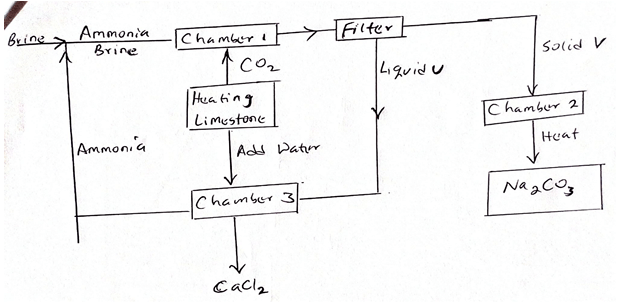 Brine
Ammonia
Brine
Chamber 1
Filter
Solid V
CO₂
Liquid U
Heating
Limestone
Chamber 2
Ammonia
Add Water
Heat
Na₂CO₃
Chamber 3
CaCl₂